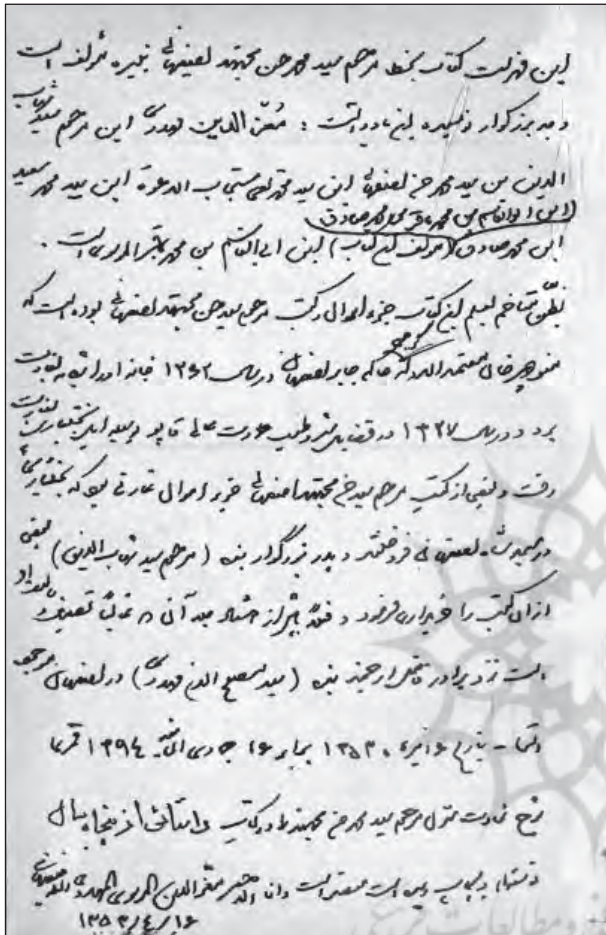 این فهرست کتاب بخط مرحوم سید محمد حسن مجتهد اصفهانی نبیره مؤلف است
و جد بزرگوار نویسنده این یادداشت : معزّالدین مهدوی ابن مرحوم سید شهاب
الدین بن سید محمد حسن اصفهانی ابن سید محمد تقی مستجاب الدعوة ابن سید محمد سعید
(ابن ابوالقاسم بن محمد باقر بن محمد صادق)
ابن محمد صادق (مؤلف این کتاب) ابن ابی القاسم بن محمد باقر الموسوی است .
بظنّ متاخم بعلم این کتاب جزء اموال و کتب مرحوم سید حسن مجتهد اصفهانی بوده است که
منوچهر خان معتمد الدوله گرجی حاکم جابر اصفهان در سال ۱۲۶۲ خانه او را به غارت
برد و در سال ۱۳۲۷ در قضایای مشروطیت عمارت عالی قاپو بوسیله ایل بختیاری بغارت
رفت و بعضی از کتب مرحوم سید حسن مجتهد اصفهانی جزء اموال غارتی بود که بختیاریها
در میدان شاه اصفهان می فروختند و پدر بزرگوار بنده (مرحوم سید شهاب الدین) بعضی
از آن کتب را خریداری فرمود و فعلا بیش از هشتاد جلد آن که غالبا تصنیف
است نزد برادر فاضل ارجمند بنده (سید مصلح الدین مهدوی) در اصفهان موجود
بتاریخ ۱۶ تیرماه ۱۳۵۳ برابر ۱۶ جمادی الثانیه ۱۳۹۴ قمری
شرح غارت منزل مرحوم سید محمد حسن مجتهد در کتاب داستانهائی از پنجاه سال
نوشته‌ام و بچاپ رسیده است است وانا معزالدین الموسوی المهدوی الاصفهانی
۱۶/۴/۱۳۵۳